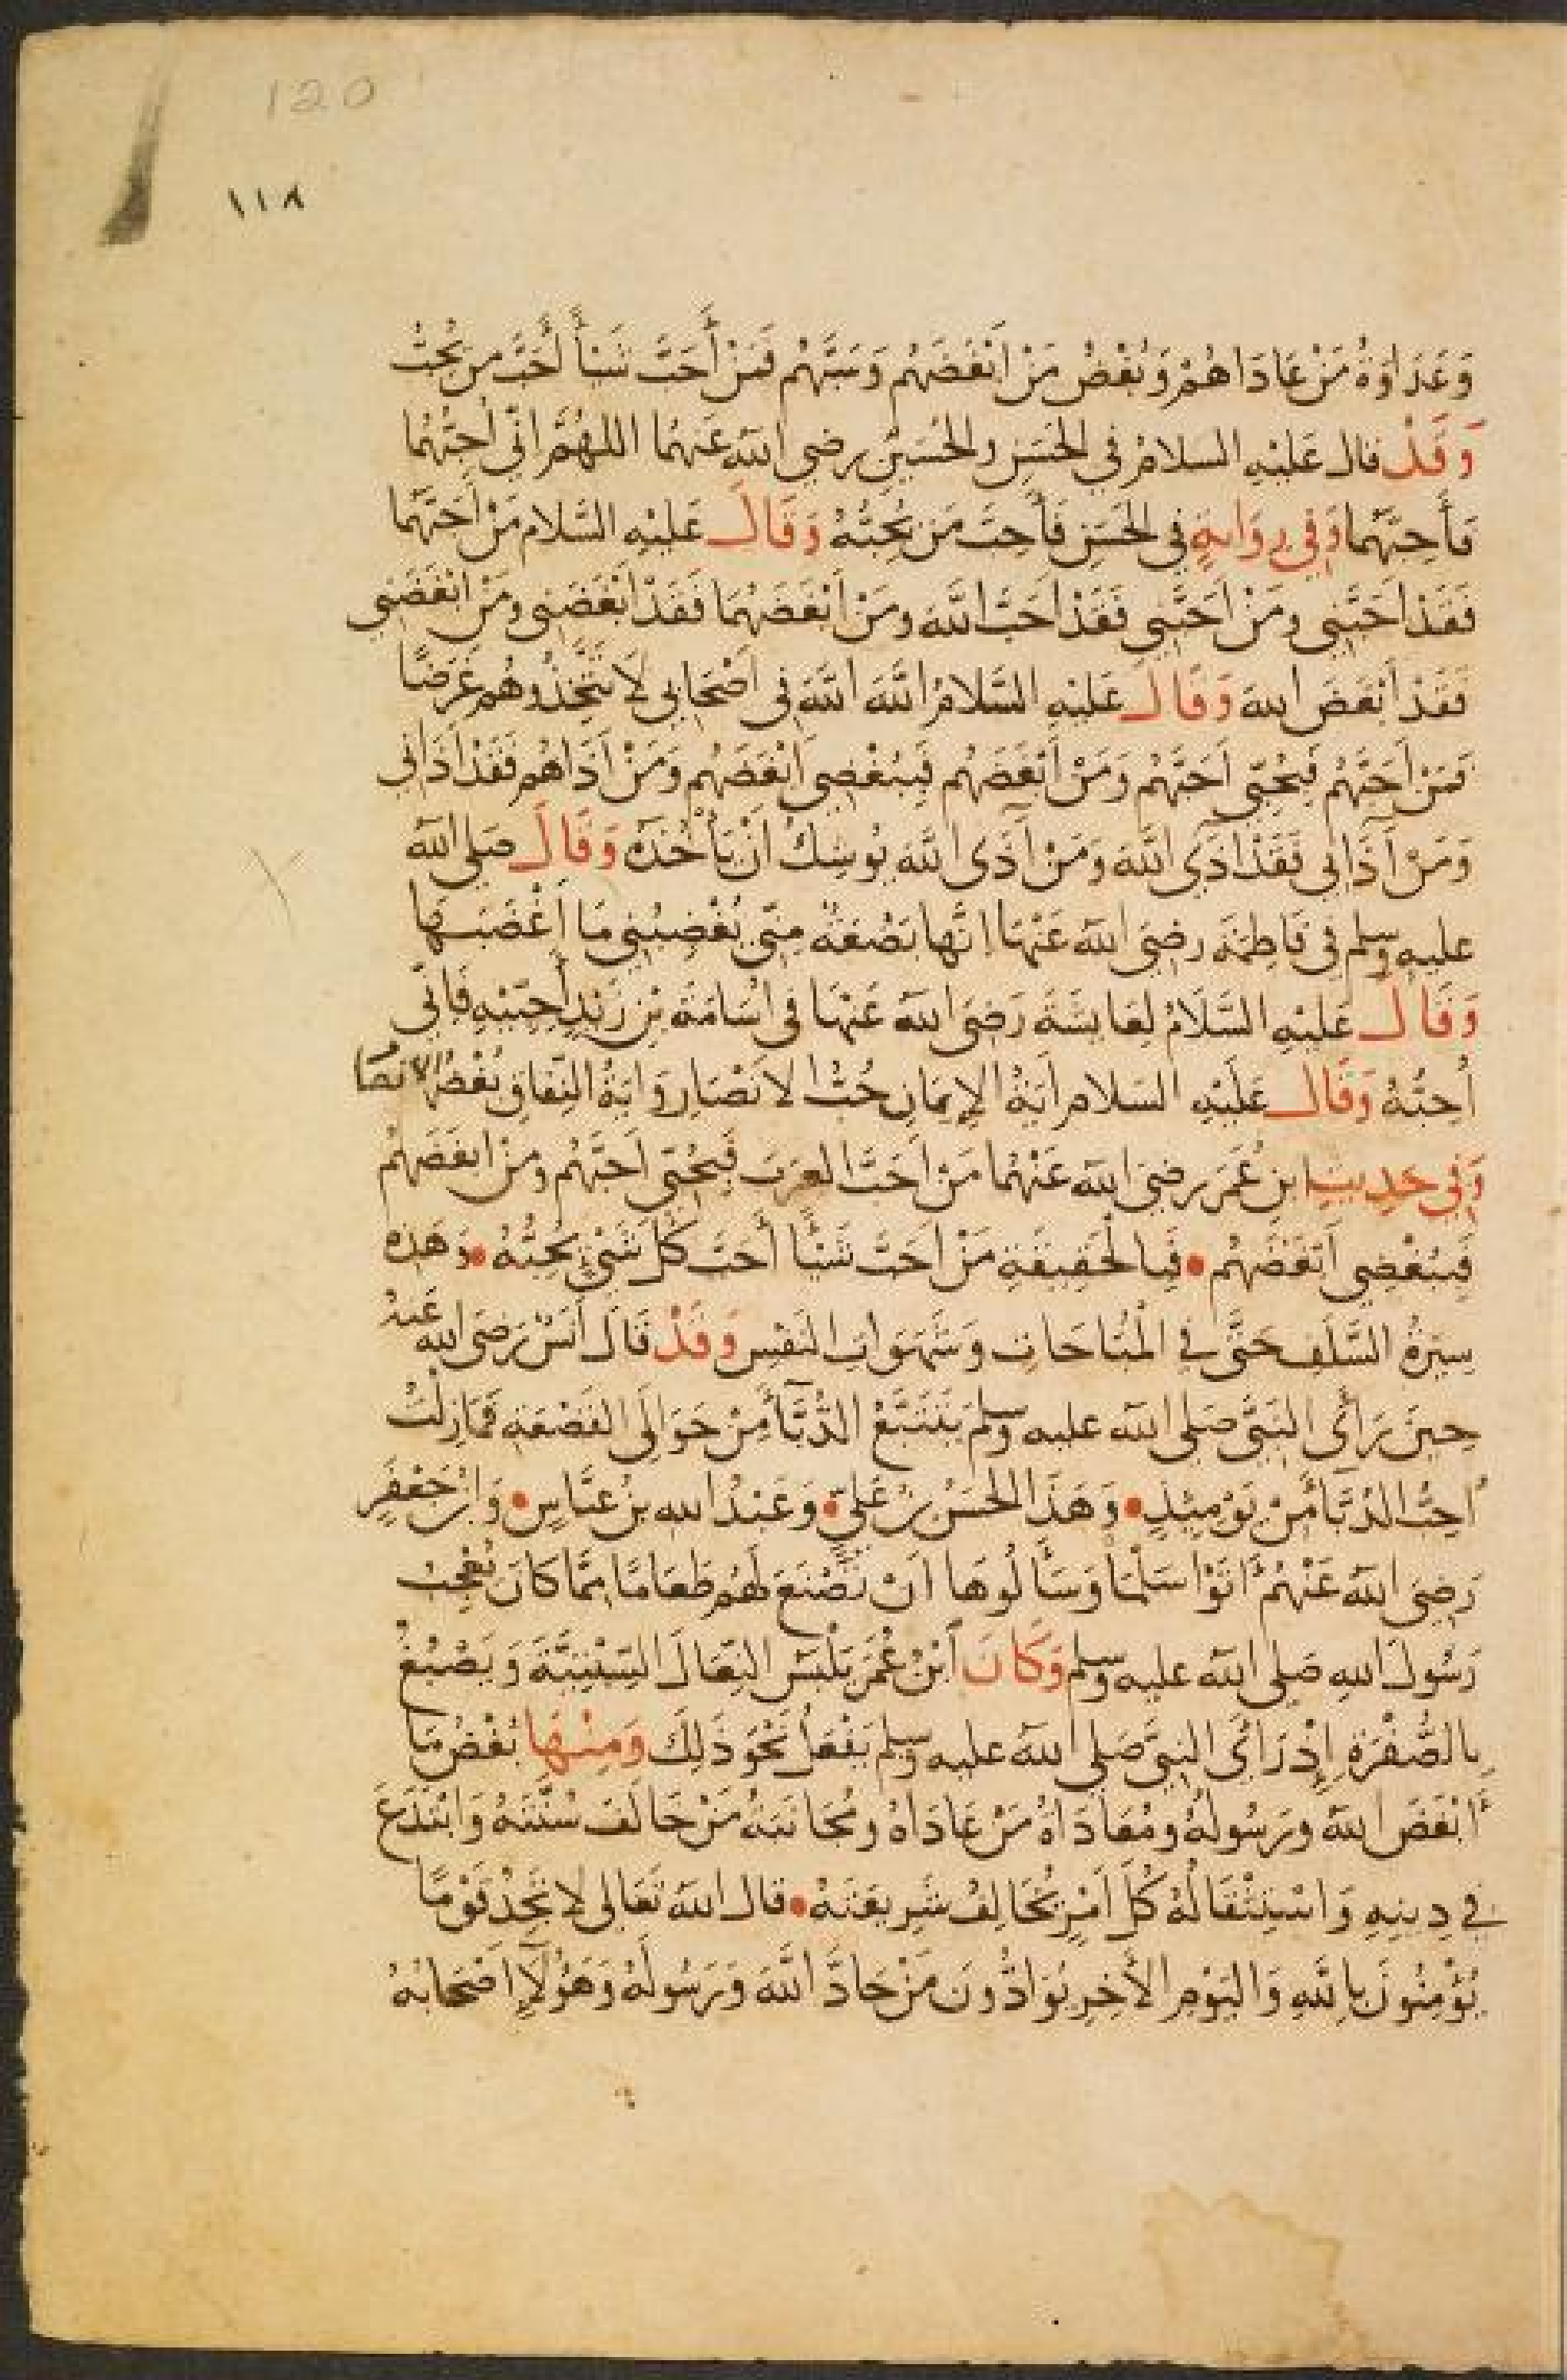 120
١١٨
وَعَدَاوَةُ مَنْ عَادَاهُمْ وَبُغْضُ مَنْ ابْغَضَهُم وَسَبَّهُم فَمَنْ أَحَبَّ شَيْأً أَحَبَّ مَن يُحِبُّ
وَقَدْ قال عَلَيْهِ السلامُ في الحَسَنِ والحُسَيْنِ رضي الله عَنهما اللهُمَّ اِنّي اُحِبُّهُما
فَأَحِبَّهُما وَفِي رِوَايَةٍ فى الحَسَنِ فَأَحِبَّ مَن يُحِبُّهُ وَقَالَ عَلَيْهِ السَّلام مَنْ اَحَبَّهُما
فَقَدْ اَحَبَّنِي ومَنْ اَحَبَّنِي فَقَدْ اَحَبَّ اللَّهَ ومَنْ اَبْغَضَهُمَا فَقَدْ اَبْغَضَنِي ومَنْ ابْغَضَنِي
فَقَدْ اَبْغَضَ اللهَ وَقَالَ عَلَيْهِ السَّلَامُ اللَّهَ اللَّهَ فِي اَصْحَابِي لَا تَتَّخِذُوهُم غَرَضًا
فَمَنْ اَحَبَّهُم فَبِحُبِّي اَحَبَّهُم وَمَنْ اَبْغَضَهُم فَبِبُغْضِي اَبْغَضَهُم وَمَنْ آذَاهُم فَقَدْ آذَانِي
وَمَنْ آذَانِي فَقَدْ آذَى اللَّهَ وَمَنْ آذَى اللَّهَ يُوشِكُ اَنْ يَأْخُذَهُ وَقَالَ صَلى الله
عليه وسلم في فَاطِمَةَ رضيَ الله عَنْهَا اِنَّها بَضْعَةٌ مِنّي يُغْضِبُنِي مَا اَغْضَبَها
وَقَالَ عَلَيْهِ السَّلَامُ لِعَايِشَةَ رَضِيَ الله عَنْهَا فى اُسَامَةَ بْنِ زَيْدٍ اَحِبِّيْهِ فَاِنِّي
اُحِبُّهُ وَقَالَ عَلَيْهِ السَلام اَيَةُ الإِيمَانِ حُبُّ الانْصَارِ وَايَةُ النِفَاقِ بُغْضُ الانصَا
وَفِي حَدِيثِ ابن عُمَرَ رضيَ الله عَنْهُمَا مَنْ اَحَبَّ العَرَبَ فَبِحُبِّي اَحَبَّهُم ومَنْ ابغَضَهُمْ
فَبِبُغْضِي اَبْغَضَهُم • فَبِالْحَقِيقَةِ مَنْ اَحَبَّ شَيْئًا اَحَبَّ كُلَّ شَيْءٍ يُحِبُّهُ • وَهَذِه
سِيْرَةُ السَّلَفِ حَتَّى فِي الْمُبَاحَاتِ وَشَهَوَاتِ النَفْسِ وَقَدْ قَالَ اَنَسٌ رَضِيَ الله عَنهُ
حِيْنَ رَأَى النَبِيَّ صَلى الله عليه وسلم يَتَتَبَّعُ الدُّبَّآءَ مِنْ حَوَالَي القَصْعَةِ فَمَا زِلْتُ
اُحِبُّ الدُبَّآءَ مِنْ يَوْمِيْذٍ • وَهَذَا الحَسَنُ بْنُ عَلِيّ • وَعَبْدُ الله بْنُ عَبَّاسٍ • وَابْنُ جَعْفَرٍ
رَضِيَ الله عَنْهُمْ اَتَوْا سَلْمَى وَسَأَلُوهَا اَنْ تَصْنَعَ لَهُم طَعَامًا مِمَّا كَانَ يُعْجِبُ
رَسُولَ اللهِ صَلى الله عليه وسلم وَكَانَ ابْنُ عُمَرَ يَلْبَسُ النِعَالَ السِبْتِيَّةَ وَيَصْبُغُ
بِالصُّفْرَةِ اِذْ رَأَى النبيَّ صَلى الله عليه وسلم يَفْعَلُ نَحْوَ ذَلِكَ وَمِنْهَا بُغْضُ مَا
اَبْغَضَ اللهُ ورَسُولُهُ ومُعَادَاةُ مَنْ عَادَاهُ ومُجَانَبَةُ مَنْ خَالَفَ سُنَّتَهُ وَابْتَدَعَ
فِي دِينِهِ وَاسْتِثْقَالُهُ كُلَّ اَمْرٍ يُخَالِفُ شَرِيعَتَهُ • قال اللهُ تَعَالَى لا تَجِدُ قَوْمًا
يُؤْمِنُونَ بِاللَّهِ وَاليَوْمِ الآخِرِ يُوَادُّونَ مَنْ حَادَّ اللَّهَ وَرَسُولَهُ وَهَؤُلَاءِ اَصْحَابُهُ